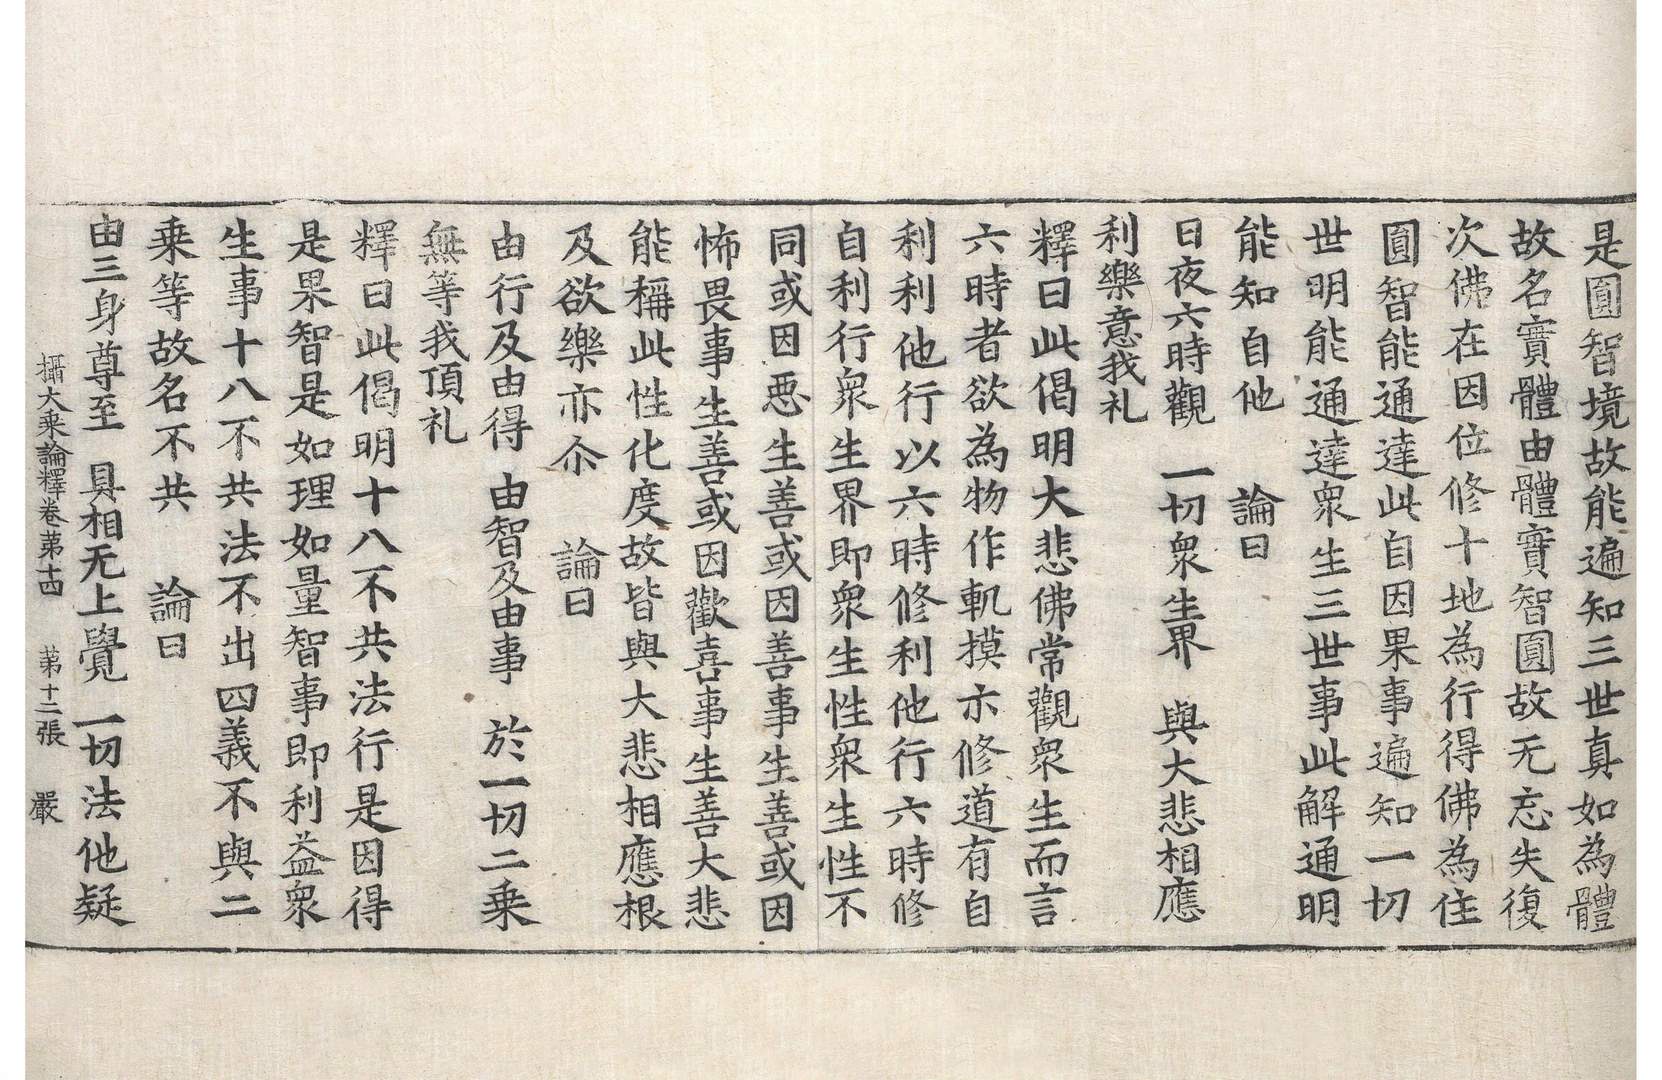 是圓智境故能遍知三世真如為體
故名實體由體實智圓故无忘失復
次佛在因位修十地為行得佛為住
圓智能通達此自因果事遍知一切
世明能通達衆生三世事此解通明
能知自他　論曰
日夜六時觀　一切衆生界　與大悲相應
利樂意我礼
釋曰此偈明大悲佛常觀衆生而言
六時者欲為物作軌摸示修道有自
利利他行以六時修利他行六時修
自利行衆生界即衆生性衆生性不
同或因惡生善或因善事生善或因
怖畏事生善或因歡喜事生善大悲
能稱此性化度故皆與大悲相應根
及欲樂亦尒　論曰
由行及由得　由智及由事　於一切二乗
無等我頂礼
釋曰此偈明十八不共法行是因得
是果智是如理如量智事即利益衆
生事十八不共法不出四義不與二
乗等故名不共　論曰
由三身尊至　具相无上覺　一切法他疑
攝大乗論釋卷苐十四　苐十二張　嚴